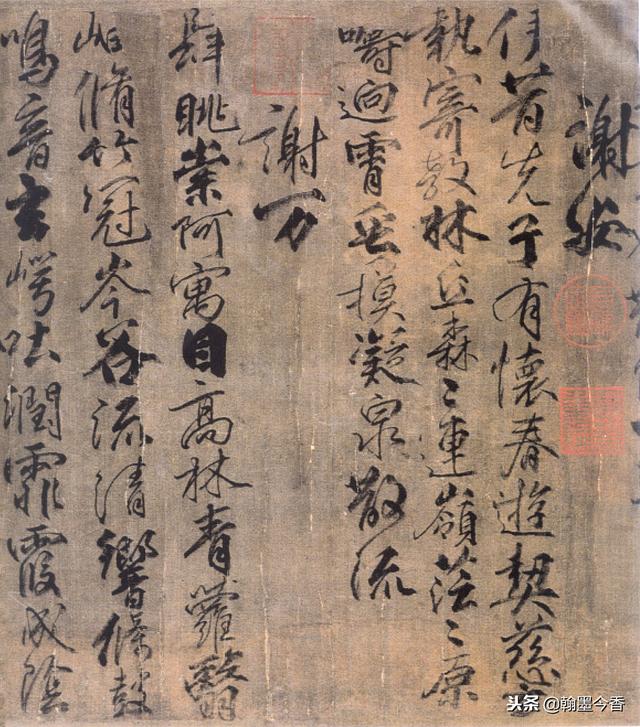 謝安
伊昔先子有懷春遊契慈
執寄敖林丘森〻連嶺茫〻原
疇迥霄垂摸凝泉散流
謝万
肆眺崇阿寓目高林青蘿翳
岫脩竹冠岑谷流清響條鼓
鳴音玄崿吐潤霏霞成陰
头条 @翰墨今香